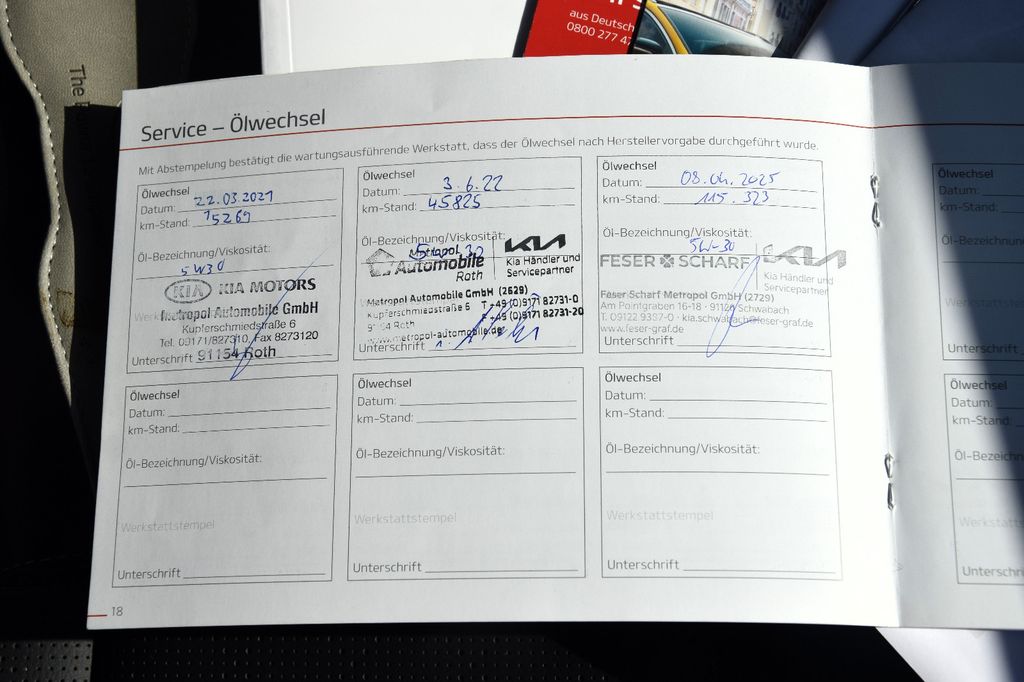 The
aus Deutsch
0800 277 47
Service – Ölwechsel
Mit Abstempelung bestätigt die wartungsausführende Werkstatt, dass der Ölwechsel nach Herstellervorgabe durchgeführt wurde.
Ölwechsel
Datum: 22.03.2021
km-Stand: 15269
Öl-Bezeichnung/Viskosität:
5W30
KIA KIA MOTORS
Metropol Automobile GmbH
Kupferschmiedstraße 6
Tel. 09171/827310, Fax 8273120
91154 Roth
Unterschrift
Ölwechsel
Datum: 3.6.22
km-Stand: 45825
Öl-Bezeichnung/Viskosität:
Metropol
Automobile
Roth
KIA
Kia Händler und
Servicepartner
Metropol Automobile GmbH (2629)
Kupferschmiedstraße 6 T +49 (0)9171 82731-0
Roth F +49 (0)9171 82731-20
www.metropol-automobile.de
Unterschrift
Ölwechsel
Datum: 08.04.2025
km-Stand: 115.323
Öl-Bezeichnung/Viskosität:
5W-30
FESER SCHARF KIA
Kia Händler und
Servicepartner
Feser Scharf Metropol GmbH (2729)
Am Pointgraben 16-18 · 91126 Schwabach
T. 09122 9387-0 · kia.schwabach@feser-graf.de
www.feser-graf.de
Unterschrift
Ölwechsel
Datum:
km-Stand:
Öl-Bezeichnung/Viskosität:
Werkstattstempel
Unterschrift
Ölwechsel
Datum:
km-Stand:
Öl-Bezeichnung/Viskosität:
Werkstattstempel
Unterschrift
Ölwechsel
Datum:
km-Stand:
Öl-Bezeichnung/Viskosität:
Werkstattstempel
Unterschrift
18
Ölwechsel
Datum:
km-Stand:
Öl-Bezeichnung
Werkstattst
Unterschrift
Ölwechsel
Datum:
km-Stand:
Öl-Bezeichn
Werkstattste
Unterschri